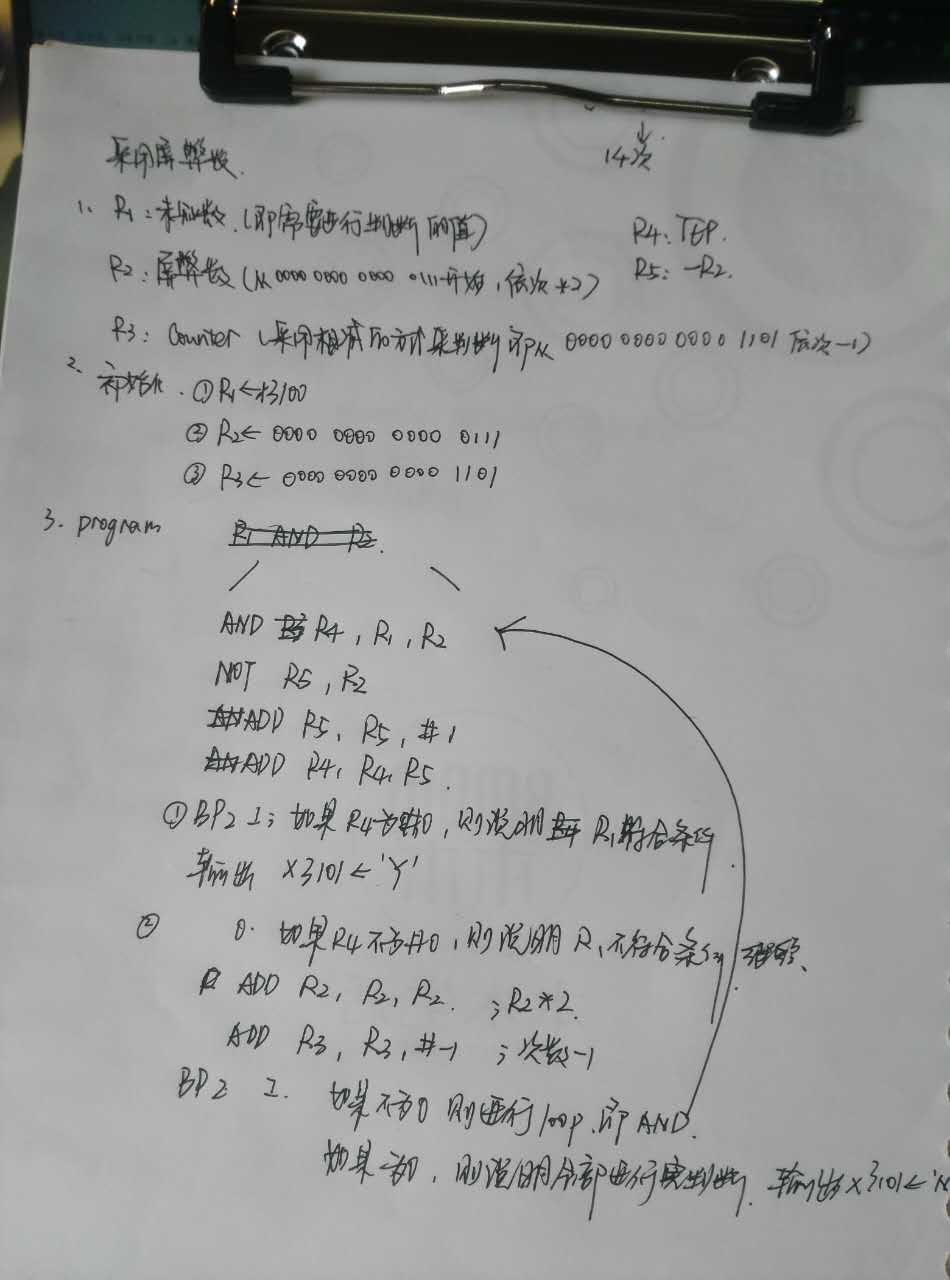 采用屏蔽数
14次
1. R1:未知数.(即需要进行判断的值)
R4:TEP.
R2:屏蔽数(从0000 0000 0000 0111开始,依次*2)
R5:-R2.
R3:Counter(采用相减的方式来判断即从 0000 0000 0000 1101 依次-1)
2. 初始化.①R1←x3100
②R2← 0000 0000 0000 0111
③R3← 0000 0000 0000 1101
3. program
R1 AND R2.
AND R4, R1, R2
NOT R5, R2
ADD R5, R5, #1
ADD R4, R4, R5.
①BRZ 1; 如果R4为0,则说明 R1符合条件
输出 x3101←'Y'
② 0. 如果R4不为0,则说明R1不符合条件
ADD R2, R2, R2. ;R2*2.
ADD R3, R3, #-1 ;次数-1
BRZ 1. 如果不为0则进行loop.即AND.
如果为0,则说明全部进行完判断.输出x3101←'N